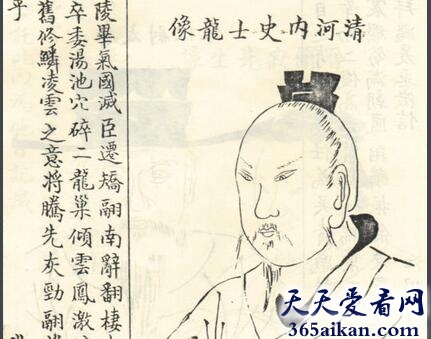 清河内史士龍像
陵畢氣國滅臣遷矯翮南辭翻棲
卒委湯池穴碎二龍巢傾雲鳳激
舊修鱗凌雲之意將騰先灰勁翮
乎
天天爱看网
365aikan.com